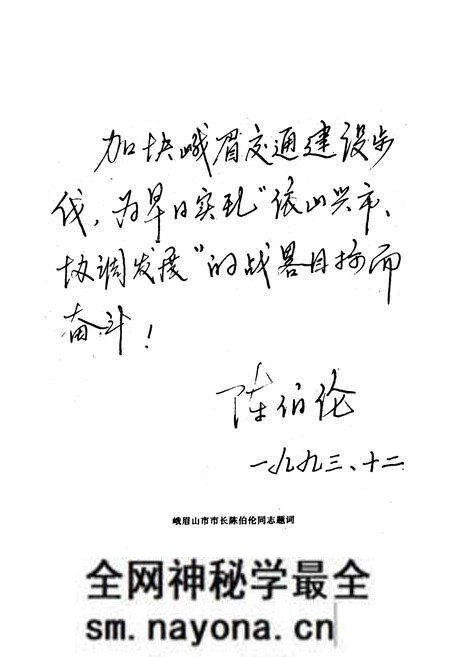 加快峨眉交通建设步
伐，为早日实现“依山兴市、
协调发展”的战略目标而
奋斗！
陈伯伦
一九九三、十二
峨眉山市市长陈伯伦同志题词
全网神秘学最全
sm.nayona.cn